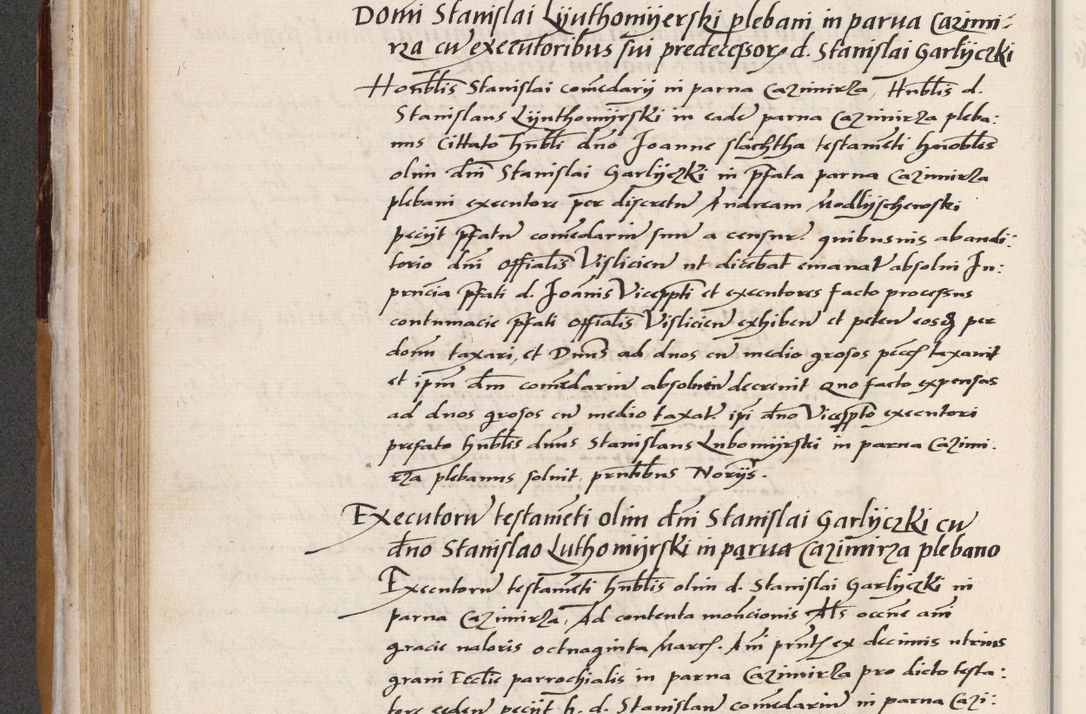 Domi Stanislai Lyuthomyerski plebani in parua Cazimi-
rza cu executoribus sui predecessor d. Stanislai Garlyczki
Honblis Stanislai comedarij in parua Cazimirza, Hnblis d.
Stanislaus Lynthomyrski in eade parua Cazimirza pleba:
nus Cittato hnbli dno Joanne slachtha testameti honoblis
olim dni Stanislai Garlyczki in pfata parua Cazimirza
plebani executore per discretu Andream Modlyschewski
pecijt pfatu comedariu suu a censur. quibusuis abandi:
torio dni Officialis Vislicien ut dicebat emanat absolui In:
pruncia pfati d. Joanis Viceppti et executores facto processus
contumacie pfati officialis Vislicien exhiben et peten eosq per
domi taxari, et Dnus ad duos cu medio grosos pecc taxauit
et ipm dm comedariu absoluen decreuit Quo facto expensas
ad duos grosos cu medio taxat. ipi dno Viceppto executori
prefato hnblis duns Stanislaus Lubomyrski in parua Cazimi.
rza plebanus soluit, prntibus Norijs.
Executoru testameti olim dni Stanislai Garlyczki cu
dno Stanislao Luthomyrski in parua Cazimirza plebano
Executoru testameti hnblis olim d. Stanislai Garlyczki in
parua Cazimirza, Ad contenta moncionis Als occne ani
gracie ualoris octuaginta Marcs. Ani prnts ex decimis utrius
grani Ecclie parrochialis in parua Cazimirza pro dicto testa:
tore eeden pecijt h. d. Stanislau comedariu in parua Cazi: